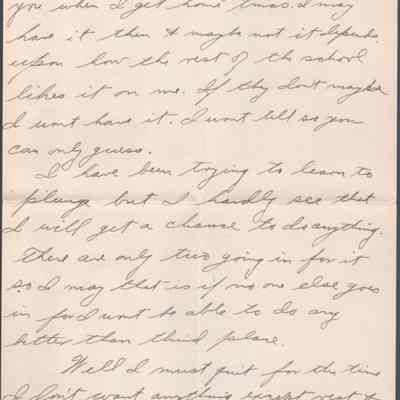 you when I get home Xmas. I may
have it then & maybe not it depends
upon how the rest of th school
likes it on me. If thy dont maybe
I wont have it. I wont tell so you
can only guess.
I have been trying to learn to
plunge but I hardly see that
I will get a chance to do anything.
There are only two going in for it
so I may that is if no one else goes
in for I wont be able to do any
better than third place.
Well I must quit for this time
I don't want anything except rest